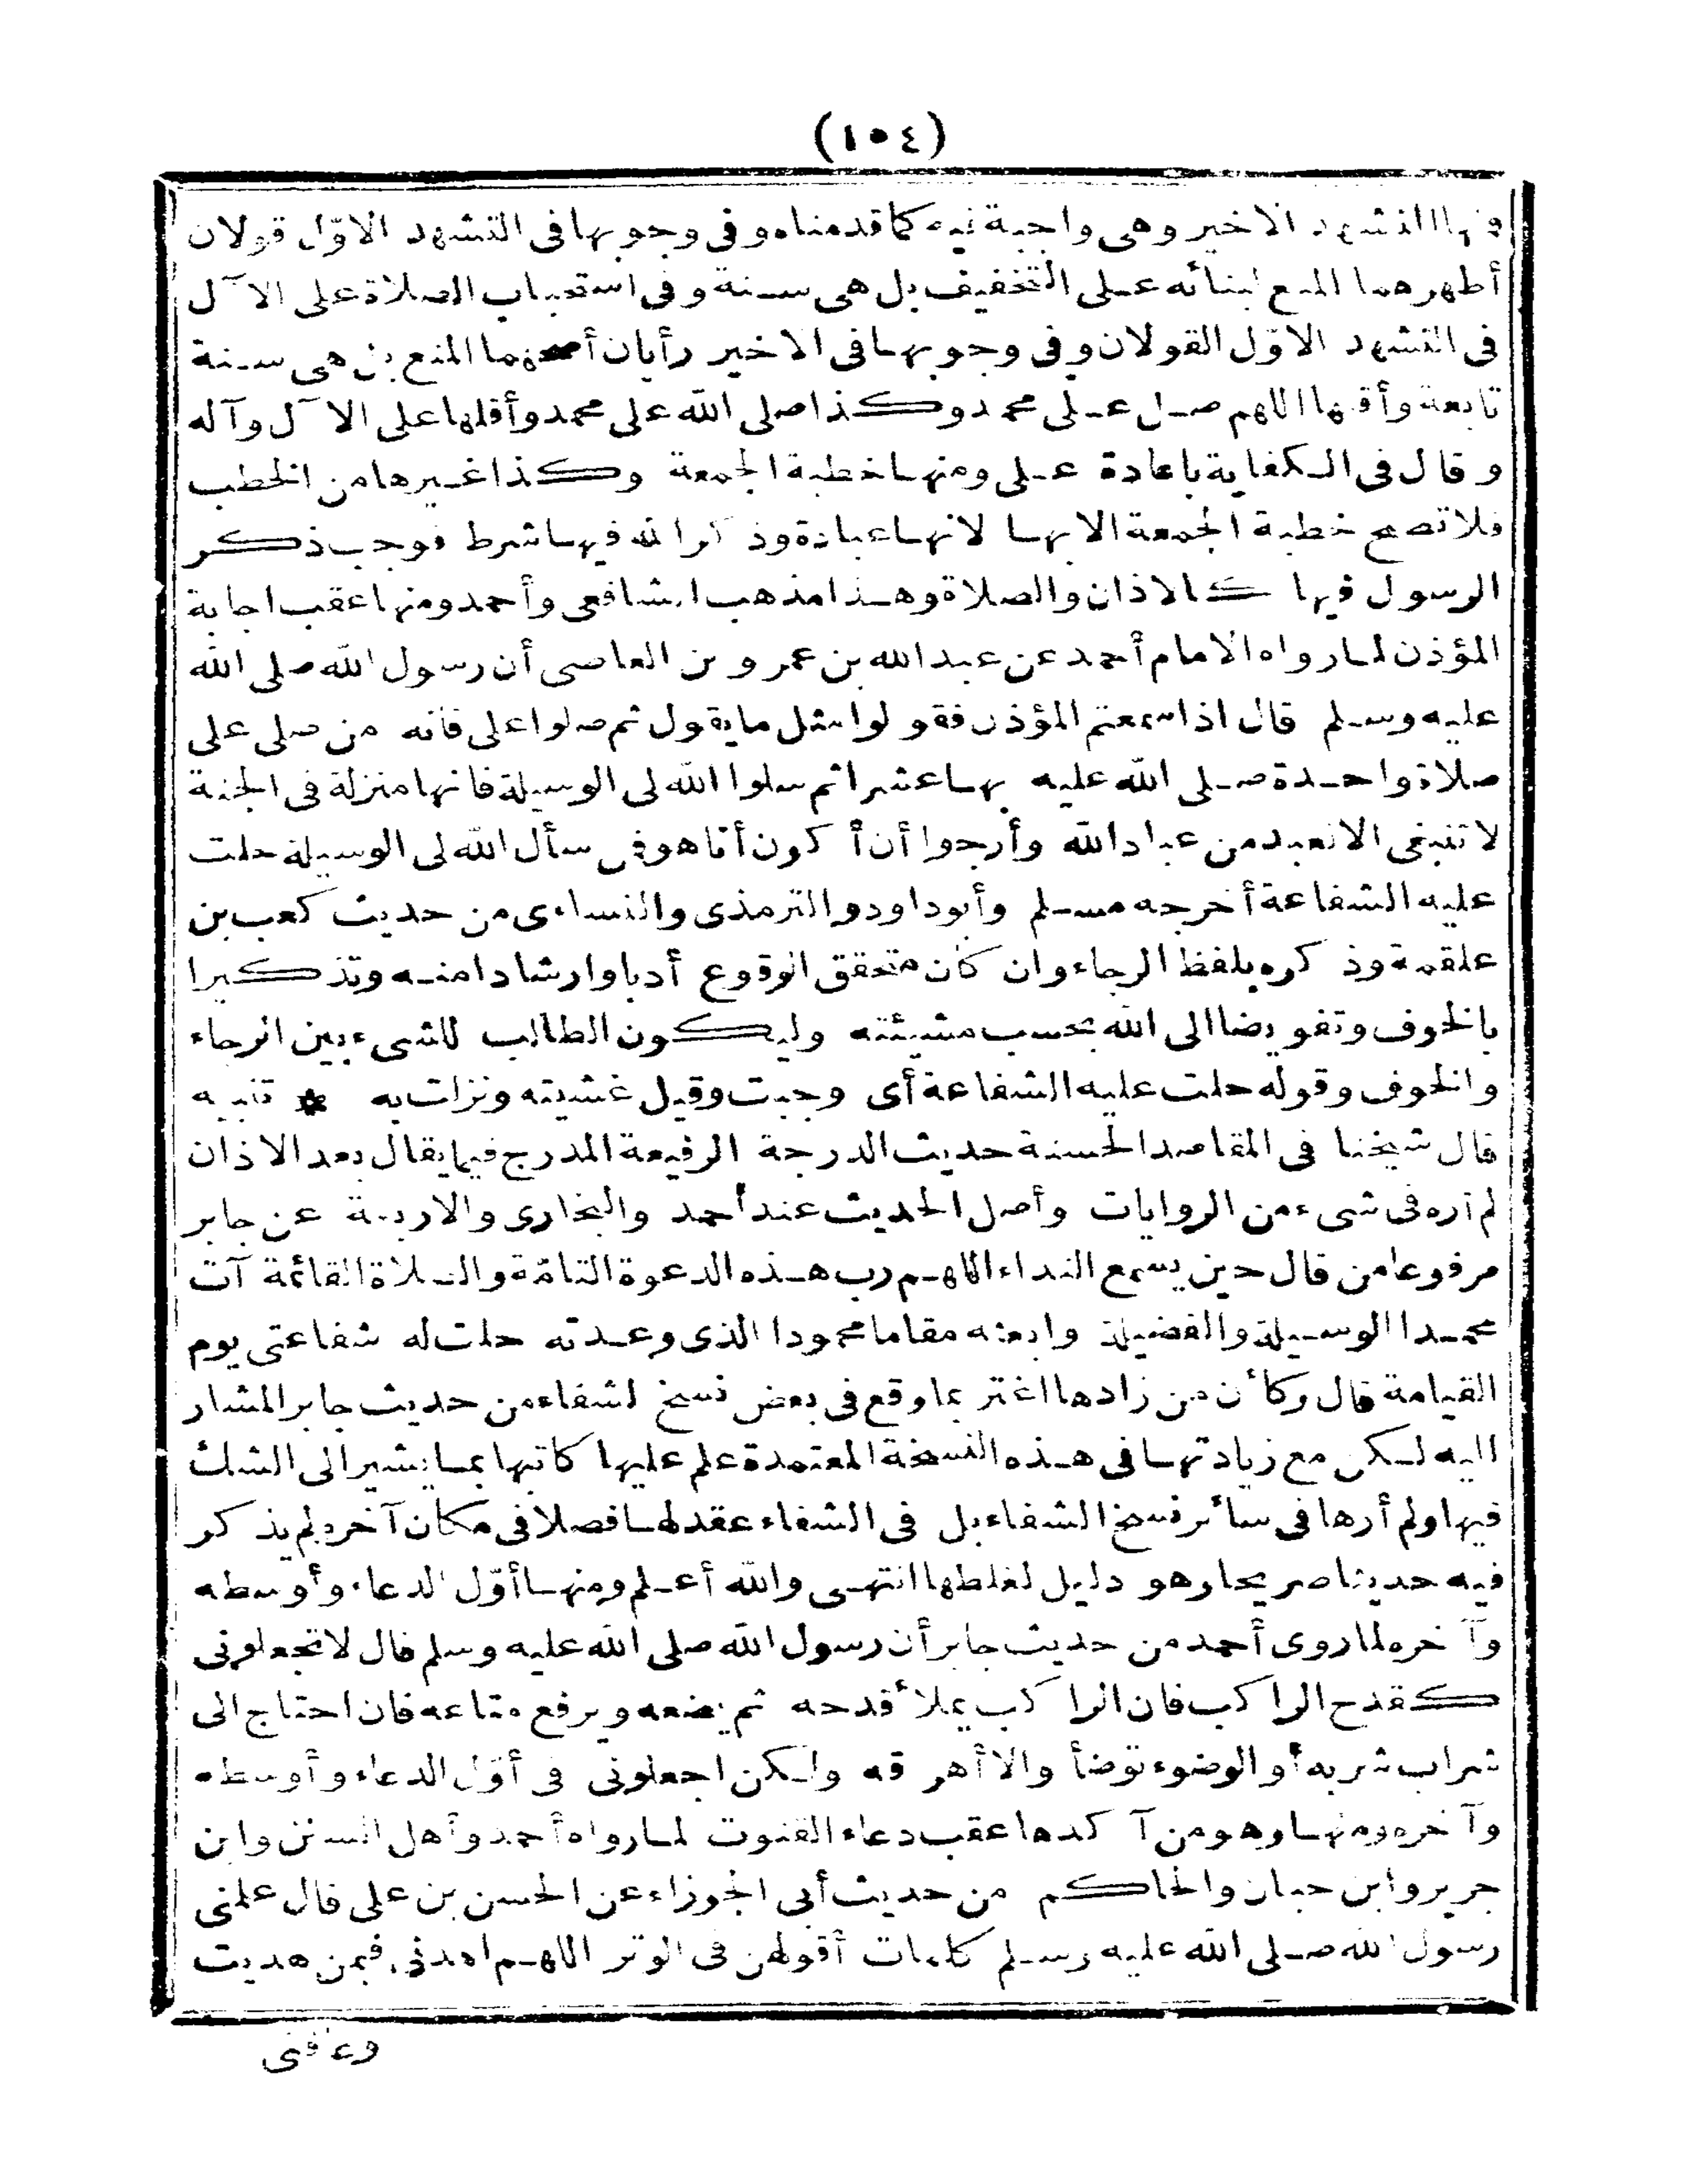 (١٠٤)
فنها التشهد الاخير وهى واجبة فيه كما قدمناه وفى وجوبها فى التشهد الاوّل قولان
أظهرهما المنع لبنائه على التخفيف بل هى سنة وفى استحباب الصلاة على الآل
فى التشهد الاوّل القولان وفى وجوبها فى الاخير رأيان أصحهما المنع بل هى سنة
تابعة وأقلها اللهم صل على محمد وكذا صلى الله على محمد وأقلها على الآل وآله
وقال فى الكفاية باعادة على ومنها خطبة الجمعة وكذا غيرها من الخطب
فلا تصح خطبة الجمعة الا بها لانها عبادة وذكر الله فيها شرط فوجب ذكر
الرسول فيها كالاذان والصلاة وهذا مذهب الشافعى وأحمد ومنها عقب اجابة
المؤذن لما رواه الامام أحمد عن عبد الله بن عمرو بن العاصى أن رسول الله صلى الله
عليه وسلم قال اذا سمعتم المؤذن فقولوا مثل ما يقول ثم صلوا على فانه من صلى على
صلاة واحدة صلى الله عليه بها عشرا ثم سلوا الله لى الوسيلة فانها منزلة فى الجنة
لا تنبغى الا لعبد من عباد الله وأرجوا أن أكون أنا هو فمن سأل الله لى الوسيلة حلت
عليه الشفاعة أخرجه مسلم وأبو داود والترمذى والنساءى من حديث كعب بن
علقمة وذكره بلفظ الرجاء وان كان متحقق الوقوع أدبا وارشادا منه وتذكيرا
بالخوف وتفويضا الى الله بحسب مشيئته وليكون الطالب للشىء بين الرجاء
والخوف وقوله حلت عليه الشفاعة أى وجبت وقيل غشيته ونزلت به * تنبيه
قال شيخنا فى المقاصد الحسنة حديث الدرجة الرفيعة المدرج فيما يقال بعد الاذان
لم أره فى شىء من الروايات وأصل الحديث عند أحمد والبخارى والاربعة عن جابر
مرفوعا من قال حين يسمع النداء اللهم رب هذه الدعوة التامّة والصلاة القائمة آت
محمدا الوسيلة والفضيلة وابعثه مقاما محمودا الذى وعدته حلت له شفاعتى يوم
القيامة قال وكأن من زادها اغتر بما وقع فى بعض نسخ الشفاء من حديث جابر المشار
اليه لكن مع زيادتها فى هذه النسخة المعتمدة علم عليها كاتبها بما يشير الى الشك
فيها ولم أرها فى سائر نسخ الشفاء بل فى الشفاء عقد لها فصلا فى مكان آخر ولم يذكر
فيه حديثا صريحا وهو دليل لغلطها انتهى والله أعلم ومنها أوّل الدعاء وأوسطه
وآخره لما روى أحمد من حديث جابر أن رسول الله صلى الله عليه وسلم قال لا تجعلونى
كقدح الراكب فان الراكب يملأ قدحه ثم يضعه ويرفع متاعه فان احتاج الى
شراب شربه أو الوضوء توضأ والا أهرقه ولكن اجعلونى فى أوّل الدعاء وأوسطه
وآخره ومنها وهو من آكدها عقب دعاء القنوت لما رواه أحمد وأهل السنن وابن
جرير وابن حبان والحاكم من حديث أبى الجوزاء عن الحسن بن على قال علمنى
رسول الله صلى الله عليه وسلم كلمات أقولهن فى الوتر اللهم اهدنى فيمن هديت
وعافنى